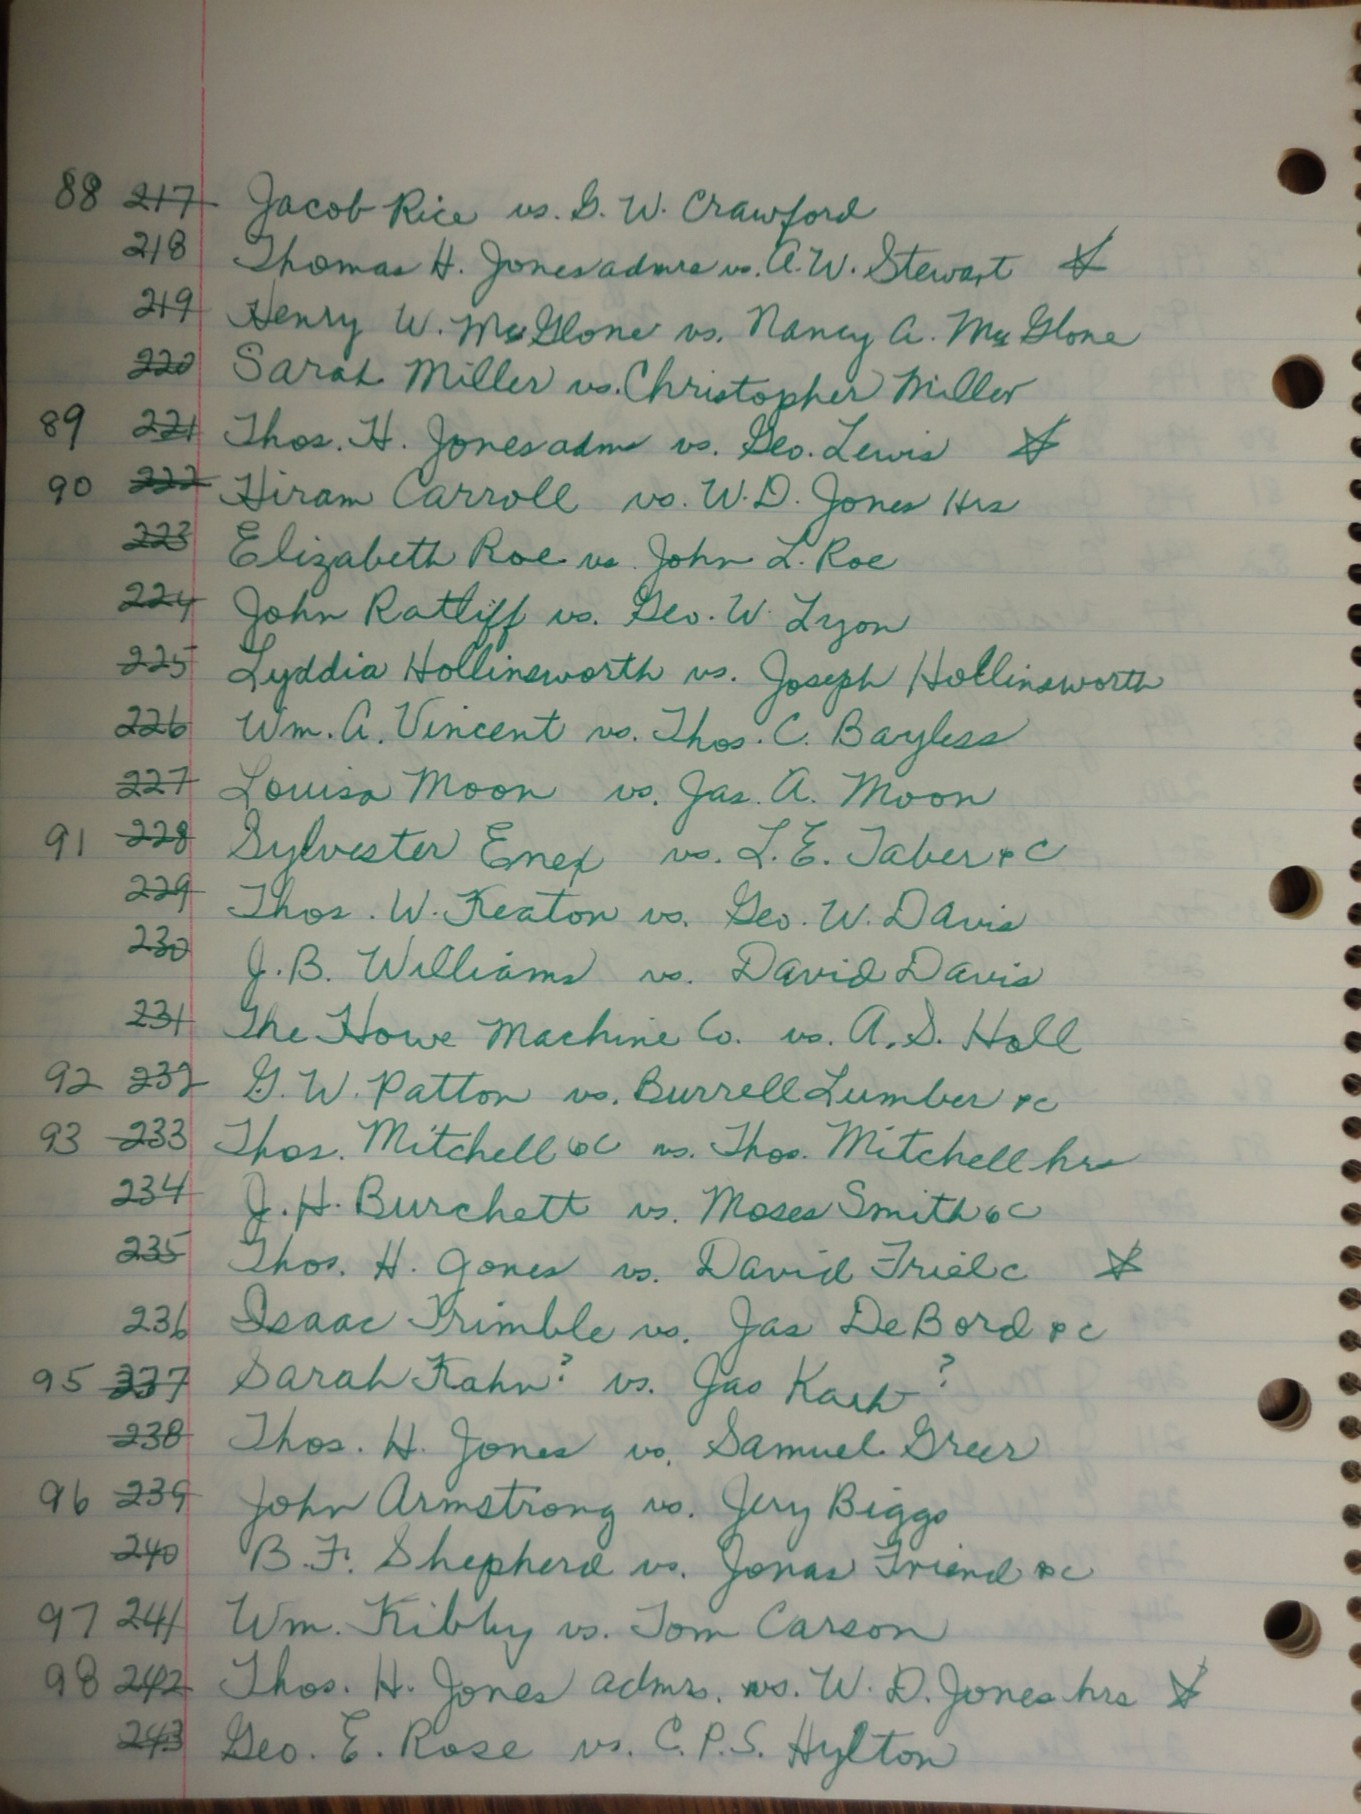 88 217 Jacob Rice vs. G. W. Crawford
218 Thomas H. Jones admrs vs. A. W. Stewart ☆
219 Henry W. McGlone vs. Nancy A. McGlone
220 Sarah Miller vs. Christopher Miller
89 221 Thos. H. Jones adms vs. Geo. Lewis ☆
90 222 Hiram Carroll vs. W. D. Jones Hrs
223 Elizabeth Roe vs. John L. Roe
224 John Ratliff vs. Geo. W. Lyon
225 Lyddia Hollinsworth vs. Joseph Hollinsworth
226 Wm. A. Vincent vs. Thos. C. Bayless
227 Louisa Moon vs. Jas. A. Moon
91 228 Sylvester Enex vs. L. E. Taber &c
229 Thos. W. Keaton vs. Geo. W. Davis
230 J. B. Williams vs. David Davis
231 The Howe Machine Co. vs. A. S. Hall
92 232 G. W. Patton vs. Burrell Lumber &c
93 233 Thos. Mitchell &c vs. Thos. Mitchell hrs
234 J. H. Burchett vs. Moses Smith &c
235 Thos. H. Jones vs. David Friel c ☆
236 Isaac Trimble vs. Jas DeBord &c
95 237 Sarah Kahn? vs. Jas Kash?
238 Thos. H. Jones vs. Samuel Greer
96 239 John Armstrong vs. Jery Biggs
240 B. F. Shepherd vs. Jonas Friend &c
97 241 Wm. Kibby vs. Tom Carson
98 242 Thos. H. Jones admrs. vs. W. D. Jones hrs ☆
243 Geo. E. Rose vs. C. P. S. Hylton